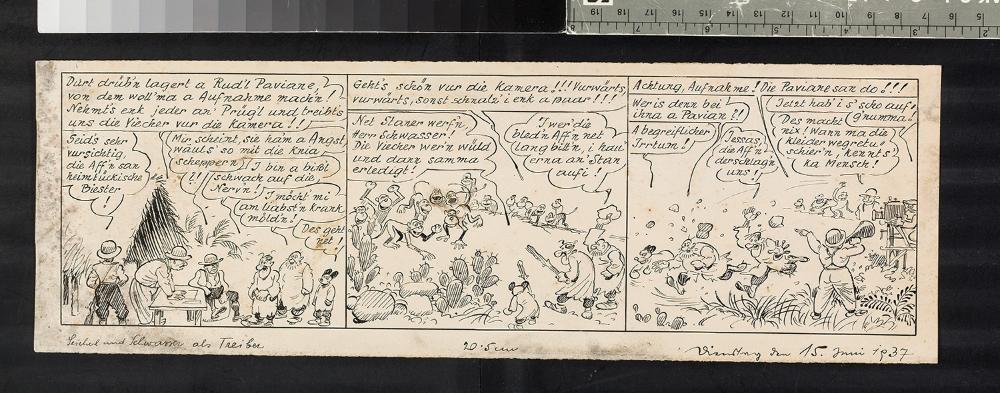 Durt drüb'n lagert a Rud'l Paviane,
von dem woll'ma a Aufnahme mach'n!
Nehmt's enk jeder an' Prüg'l und treibt's
uns die Viecher vur die Kamera!!!
Seid's sehr
vursichtig,
die Aff'n san
heimtückische
Biester!
Mir scheint, sie hab'n a Angst,
waul's' so mit die Knia
schepper'n!
!?!
I bin a bißl
schwach auf die
Nerv'n!
I möcht' mi
am liabst'n krank
meld'n!
Des geht
net!
Geht's schön vur die Kamera!!! Vurwärts,
vurwärts, sonst schnalz' i enk a paar!!!
Net Staner werf'n,
Herr Schwasser!
Die Viecher wer'n wüld
und dann samma
erledigt!
I wer die
bled'n Aff'n net
lang bitt'n, i hau'
erna an' Stan
aufi!
Achtung, Aufnahme! Die Paviane san do!!!
Wer is denn bei
ihna a Pavian?!
A begreiflicher
Irrtum!
Jessas,
die Aff'n
derschlag'n
uns!
Jetzt hab' i s' scho auf-
g'numma!
Des macht
nix! Wann ma die
kleider wegretu-
schier'n, kennt's
ka Mensch!
Seichel und Schwasser als Treiber
20·5 cm
Dienstag den 15. Juni 1937
19 18 17 16 15 14 13 12 11 10 9 8 7 6 5
8 7 6 5 4 3 2